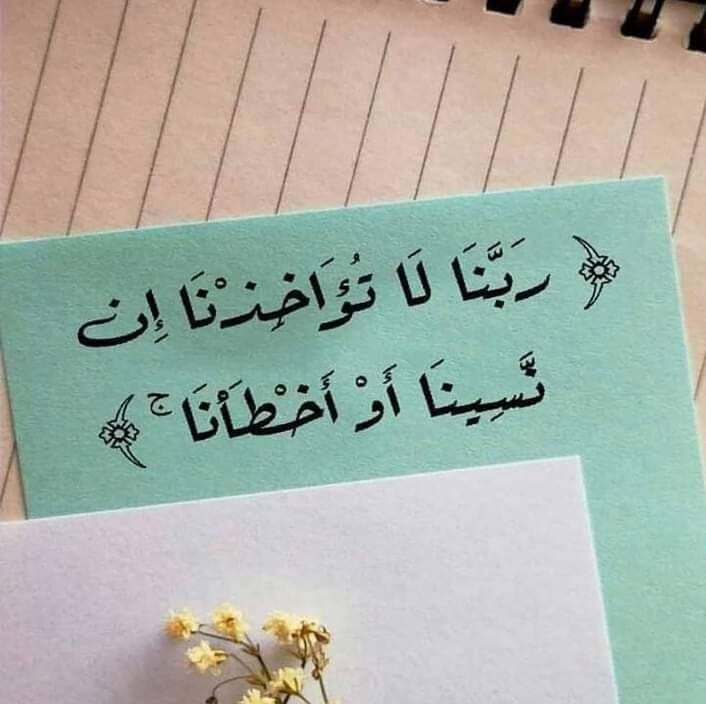 ﴿ رَبَّنَا لَا تُؤَاخِذْنَا إِن
نَّسِينَا أَوْ أَخْطَأْنَا ۚ ﴾